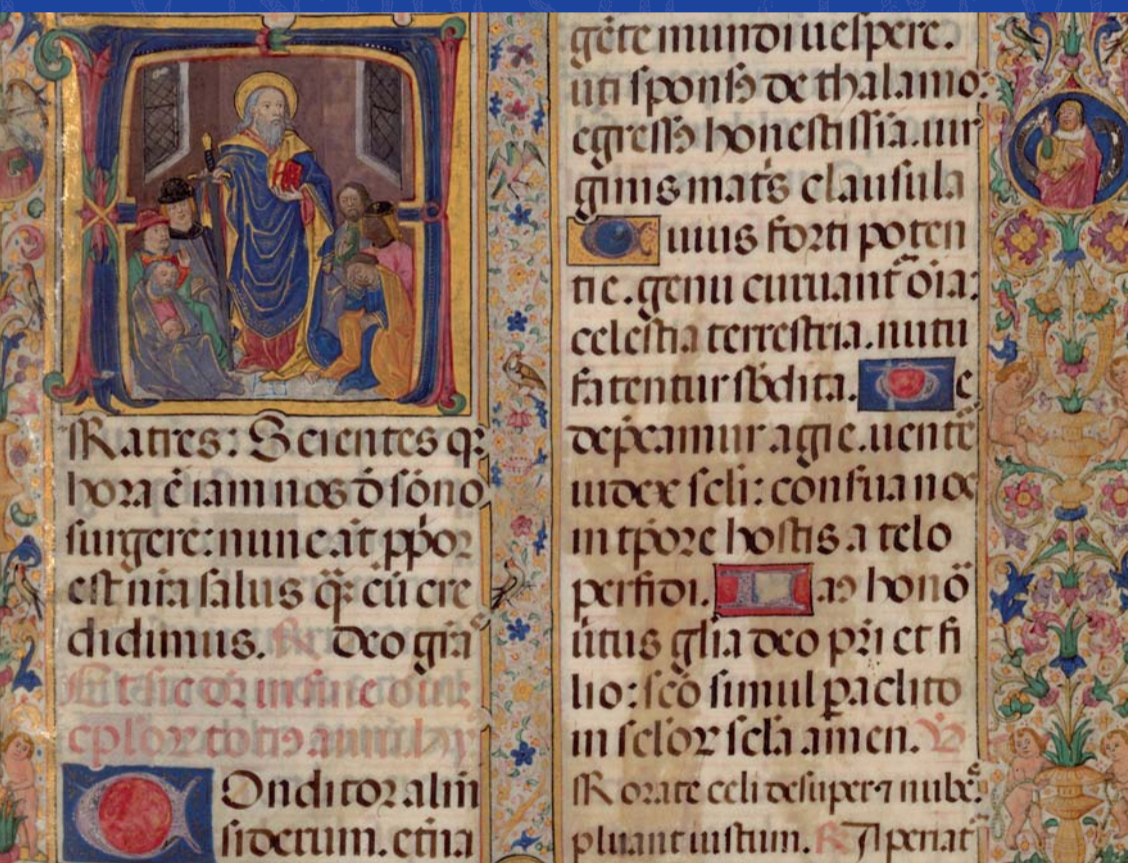 FRatres: Scientes qꝫ
hora ē iam nos d̄ sōno
surgere: nunc aūt ꝓpōr
est nr̄a salus qꝫ cū cre
didimus. ℟ Deo grā
Et sic dr̄ in fine oīuꝫ
toti9 hy
COnditor alm
siderum. etn̄a
gēte mundi uespere.
uti spons9 de thalamo:
egress9 honestissīa. uir
ginis mat̄s clausula
Cuius forti poten
tie. genu curuant̄ oīa:
celestia terrestria. nutu
fatentur sb̄dita. Te
dep̄camur agie. uentē
iudex scl̄i: conserua nos
in tp̄ore hostis a telo
perfidi. La9 honō
uirtus gl̄ia deo pr̄i et fi
lio: scō simul ꝑaclito
in scl̄oꝝ scl̄a amen. ℣
Rorate celi desuper ⁊ nubes
pluant iustum. ℟ Aperiat̄